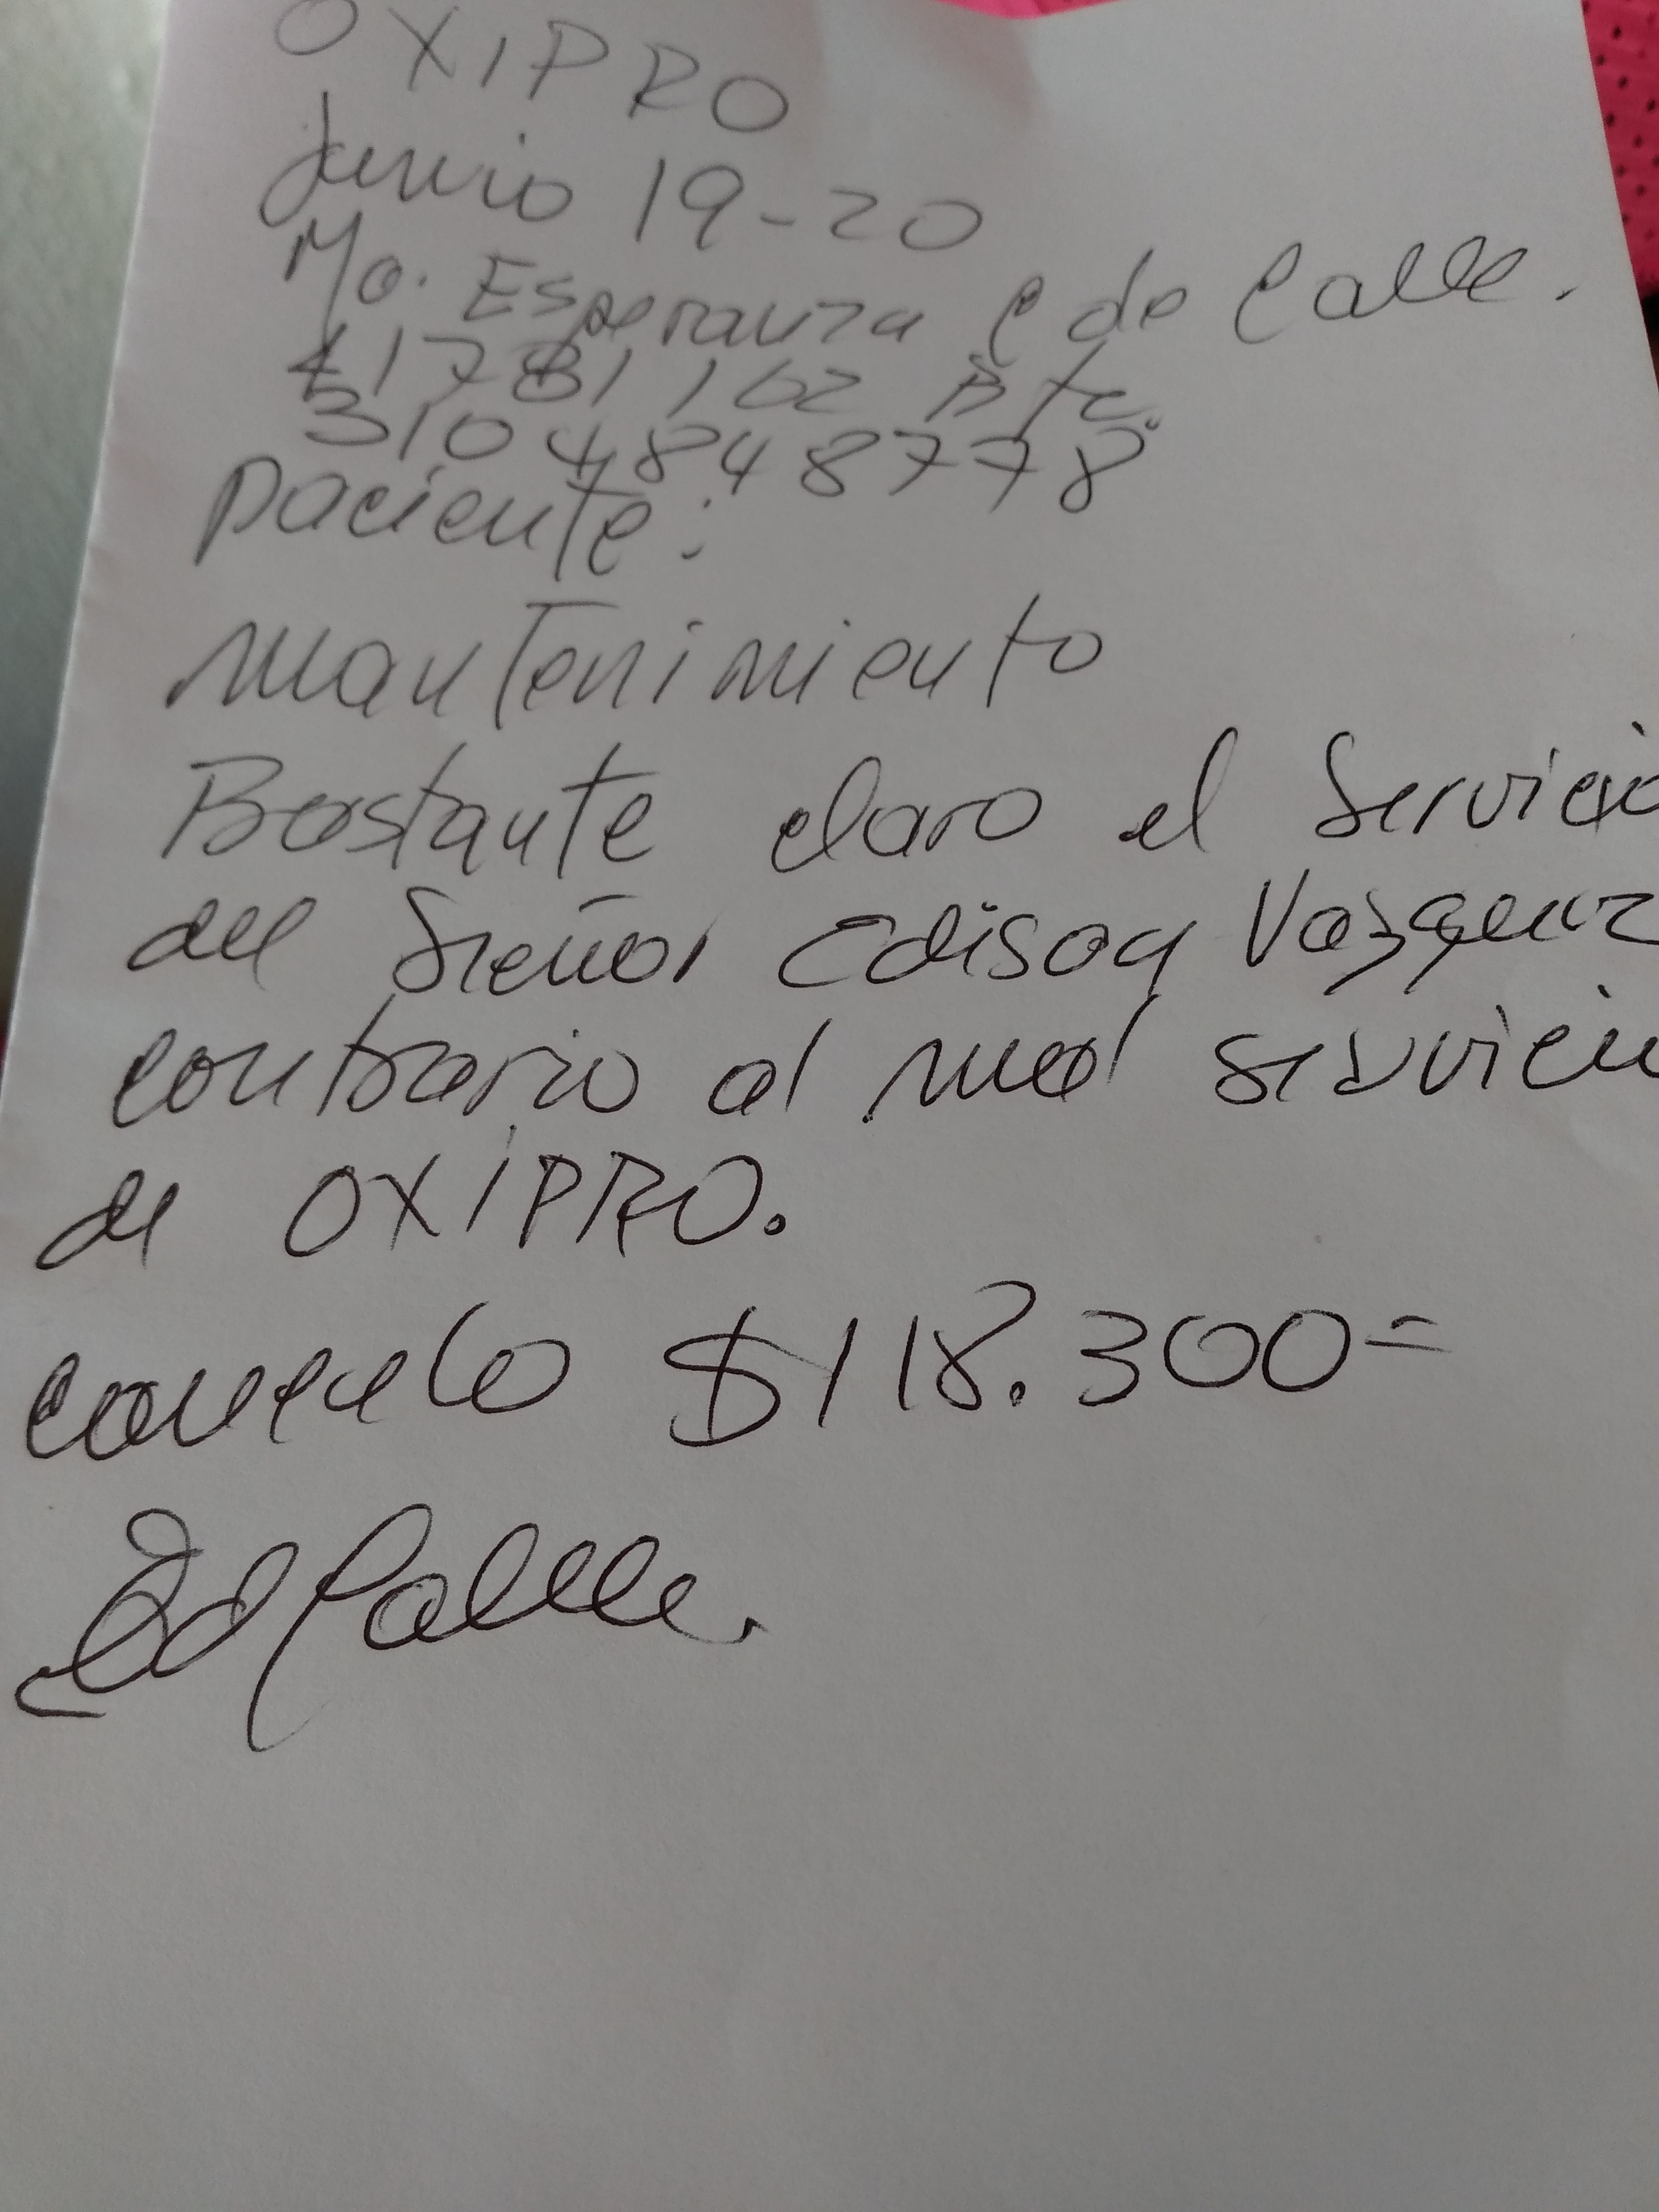 OXIPRO
Junio 19-20
Ma. Esperanza C de Calle.
41781162 Bta.
3104848778
Paciente:
Mantenimiento
Bastante claro el Servicio
del Señor Edison Vasquez
contrario al mal servicio
de OXIPRO.
cancelo $118.300=